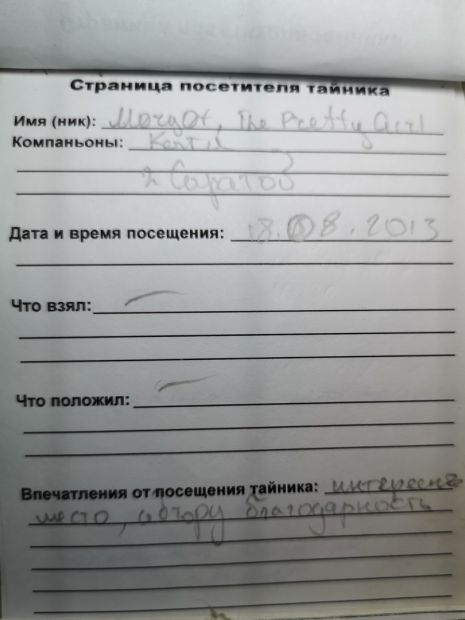 Страница посетителя тайника
Имя (ник): Morgot, The Pretty Girl
Компаньоны:
г Саратов
Дата и время посещения: 18.08.2013
Что взял: —
Что положил: —
Впечатления от посещения тайника: интересное
место, автору благодарность